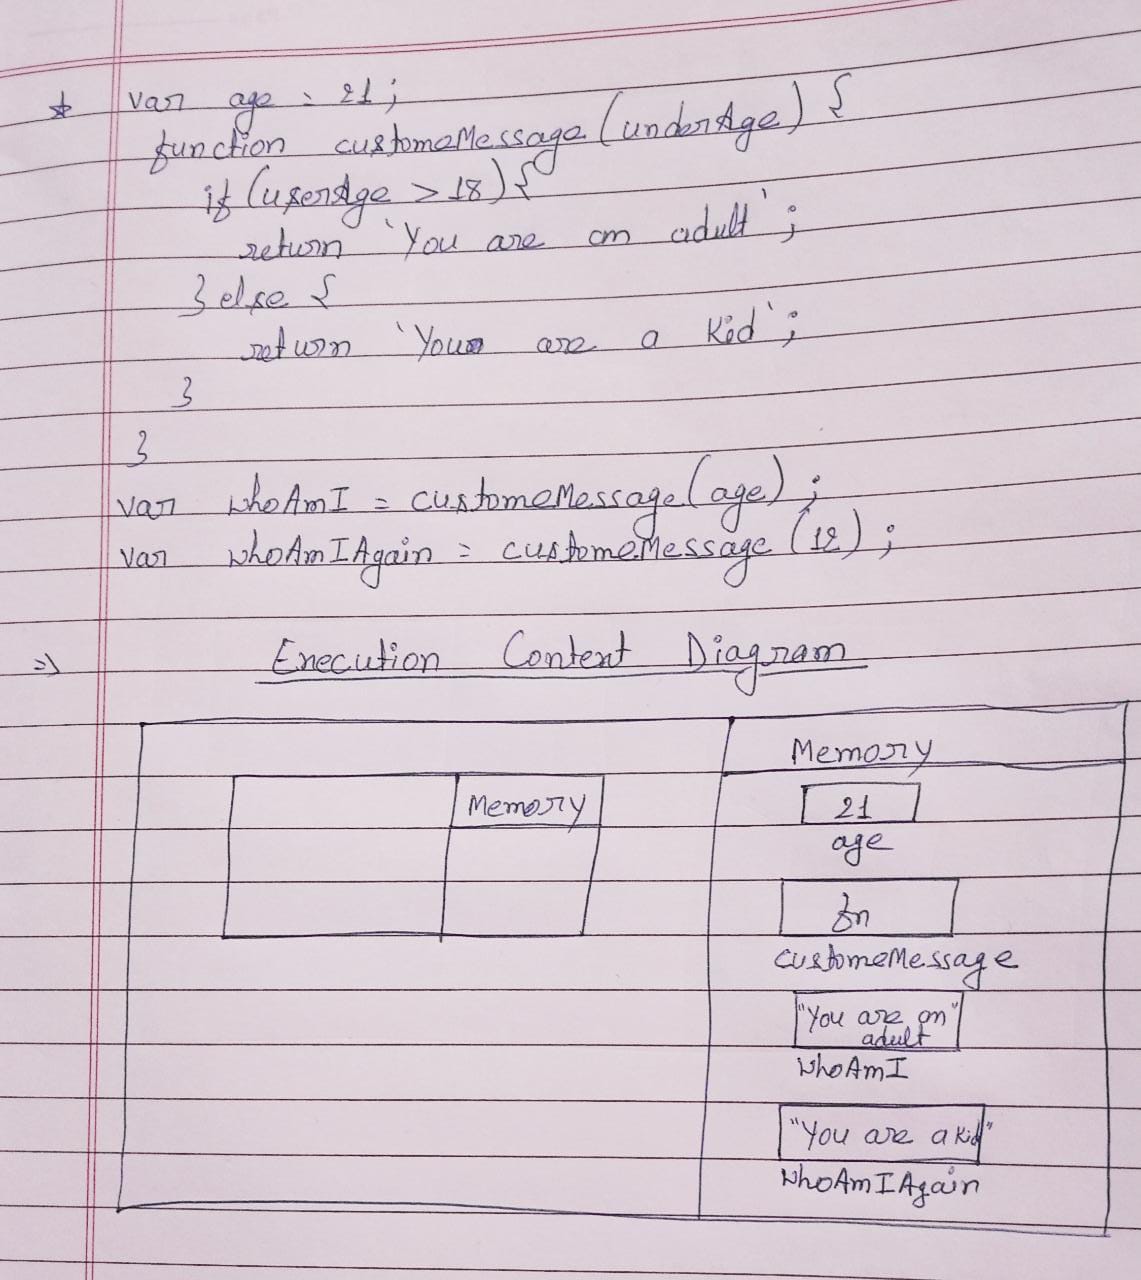 * var age = 21;
function customeMessage (underAge) {
if (userAge > 18) {
return 'You are an adult';
} else {
return 'You are a Kid';
}
}
var whoAmI = customeMessage (age);
var whoAmIAgain = customeMessage (12);
=> Execution Context Diagram
Memory
Memory
21
age
fn
customeMessage
"You are an"
adult
whoAmI
"You are a kid"
whoAmIAgain